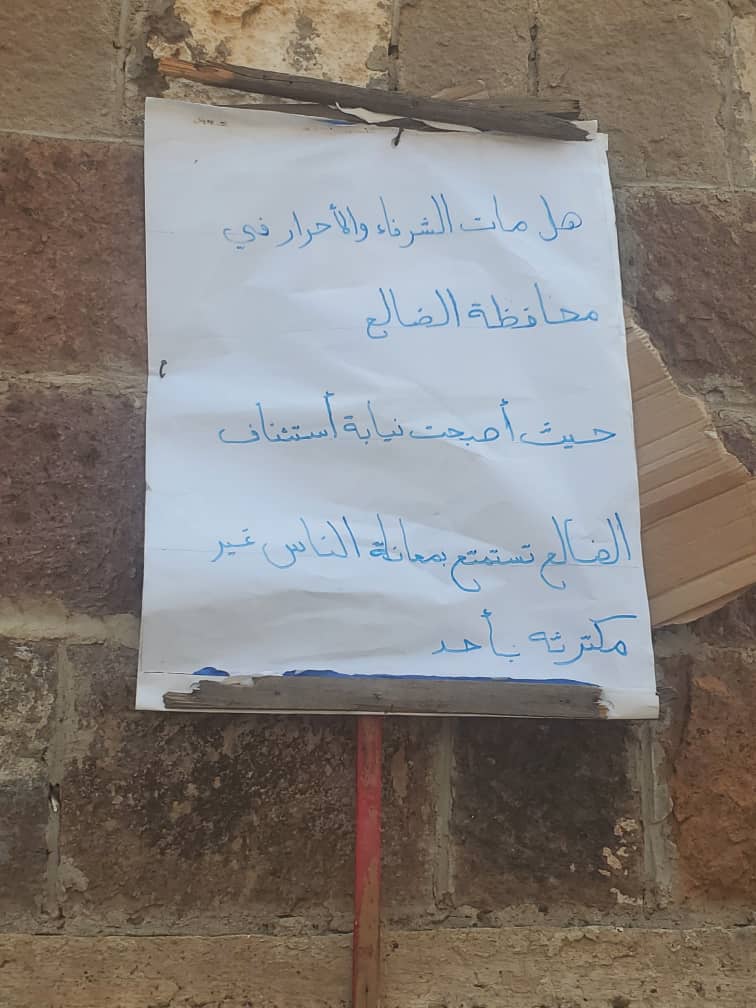 هل مات الشرفاء والأحرار في
محافظة الضالع
حيث أصبحت نيابة أستئناف
الضالع تستمتع بمعاناة الناس غير
مكترثه بأحد